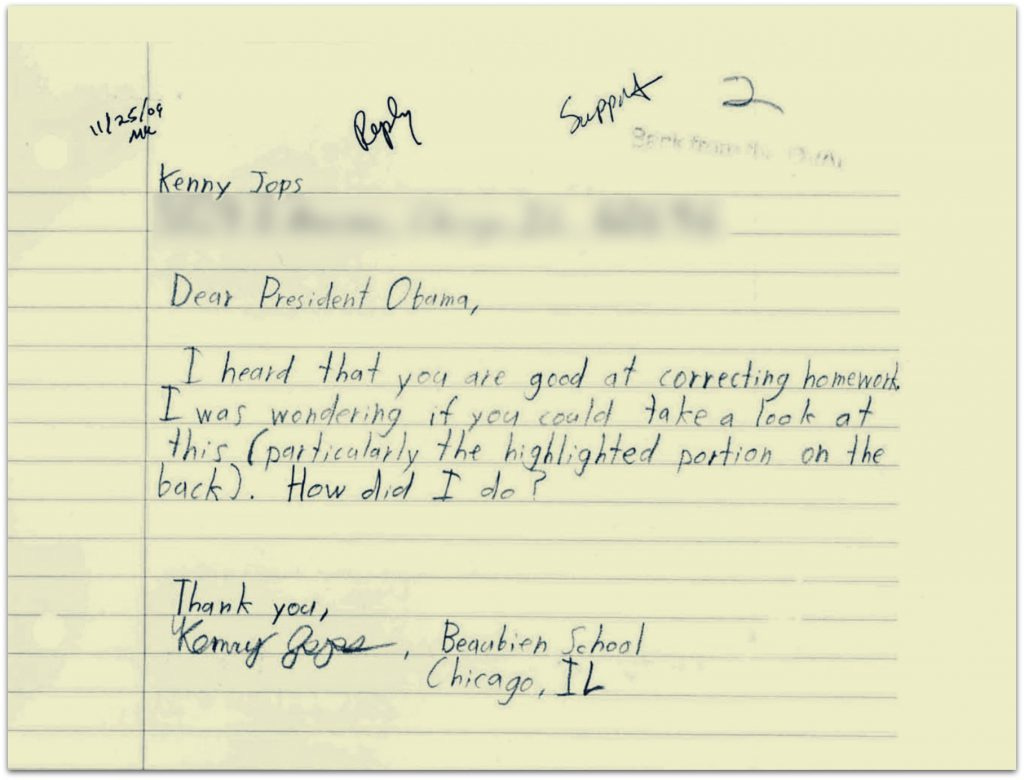 11/25/09
MK
Reply
Support
2
Back from the
Kenny Jops
Dear President Obama,
I heard that you are good at correcting homework.
I was wondering if you could take a look at
this (particularly the highlighted portion on the
back). How did I do?
Thank you,
Kenny Jops, Beaubien School
Chicago, IL